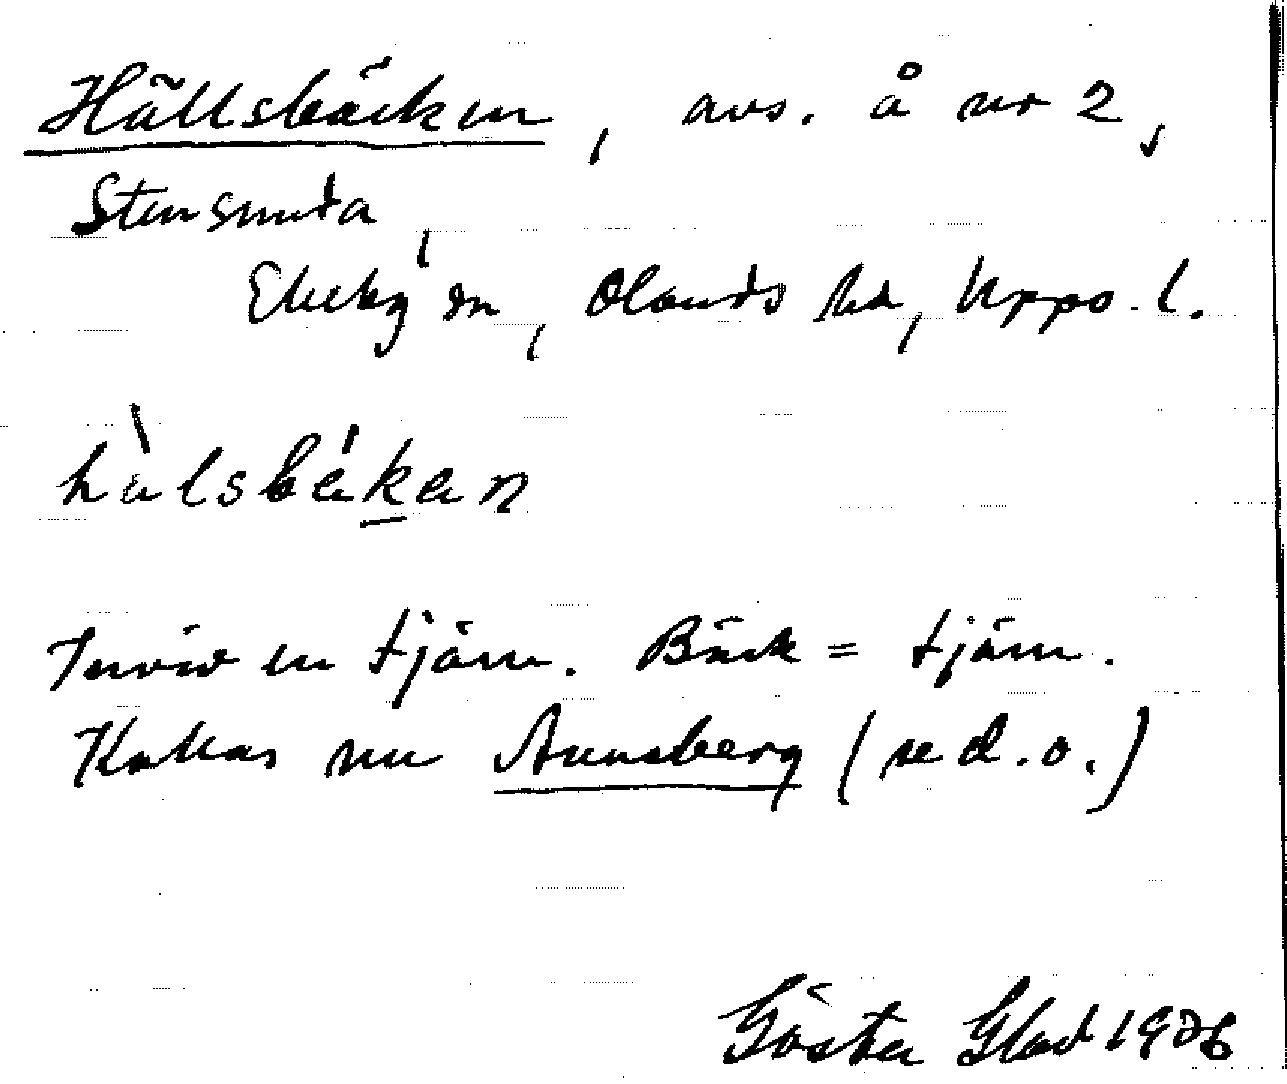 Hällsbäcken, avs. å nr 2,
Stensunda,
Ekeby sn, Olands hd, Upps. l.
hàlsbákan
Invid en tjärn. Bäck = tjärn.
Kallas nu Annsberg (se d. o.)
Gösta Glad 1906